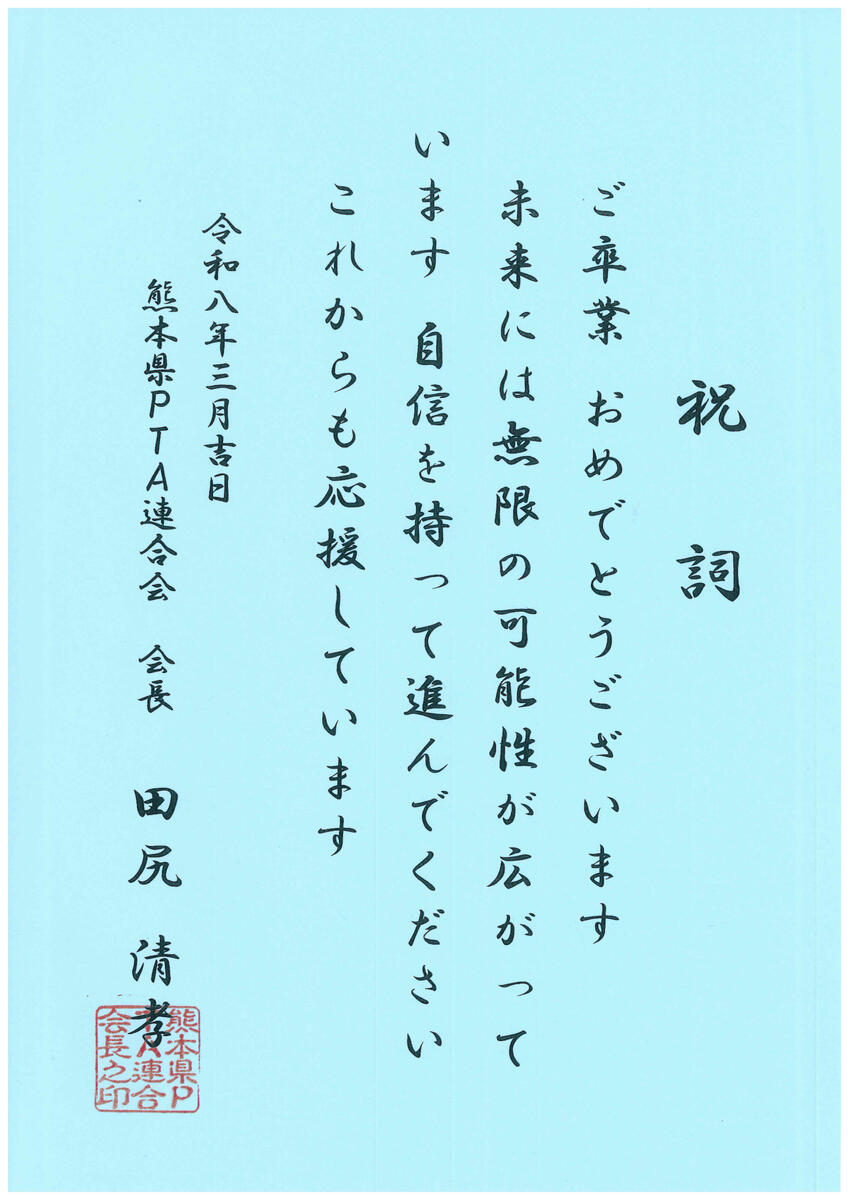 祝詞
ご卒業　おめでとうございます
未来には無限の可能性が広がって
います　自信を持って進んでください
これからも応援しています
令和八年三月吉日
熊本県PTA連合会　会長　田尻　清孝
熊本県P
TA連合
会長之印